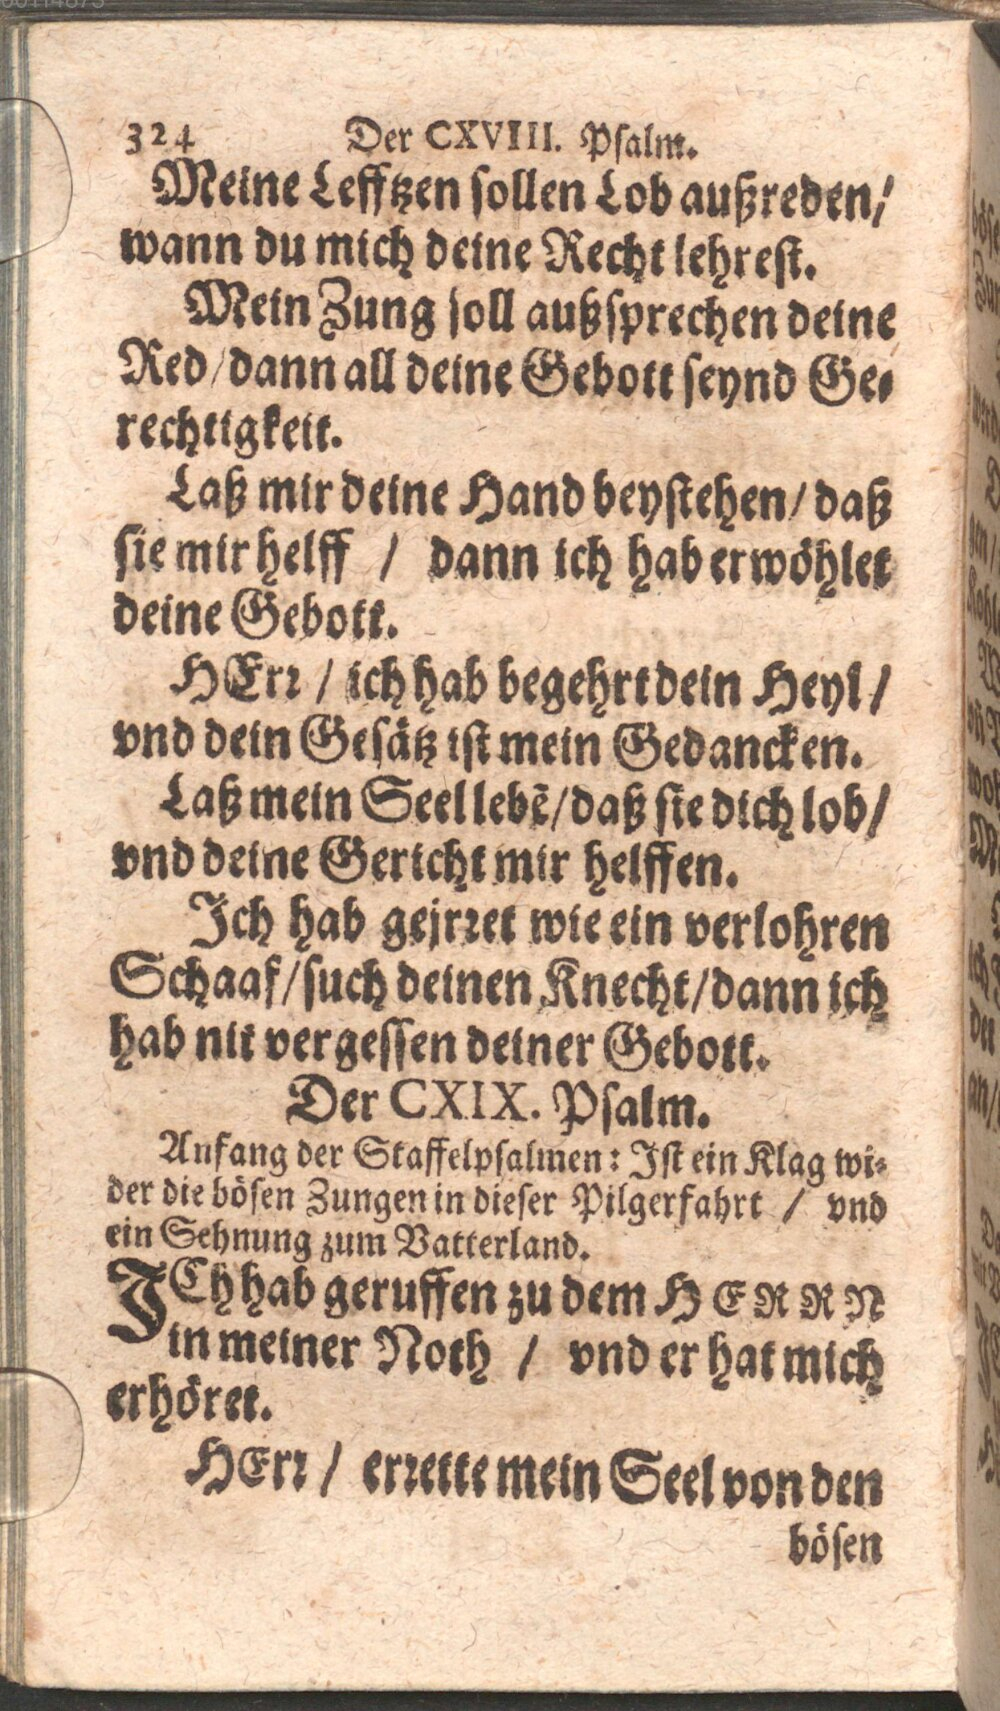 324 Der CXVIII. Psalm.
Meine Lefftzen sollen Lob außreden/
wann du mich deine Recht lehrest.
Mein Zung soll außsprechen deine
Red/dann all deine Gebott seynd Ge-
rechtigkeit.
Laß mir deine Hand beystehen/ daß
sie mir helff / dann ich hab erwöhlet
deine Gebott.
HErr / ich hab begehrt dein Heyl /
vnd dein Gesätz ist mein Gedancken.
Laß mein Seel lebẽ/daß sie dich lob/
vnd deine Gericht mir helffen.
Ich hab gejrret wie ein verlohren
Schaaf/such deinen Knecht/dann ich
hab nit vergessen deiner Gebott.
Der CXIX. Psalm.
Anfang der Staffelpsalmen: Ist ein Klag wi-
der die bösen Zungen in dieser Pilgerfahrt / vnd
ein Sehnung zum Vatterland.
ICh hab geruffen zu dem HERRN
in meiner Noth / vnd er hat mich
erhöret.
HErr / errette mein Seel von den
bösen